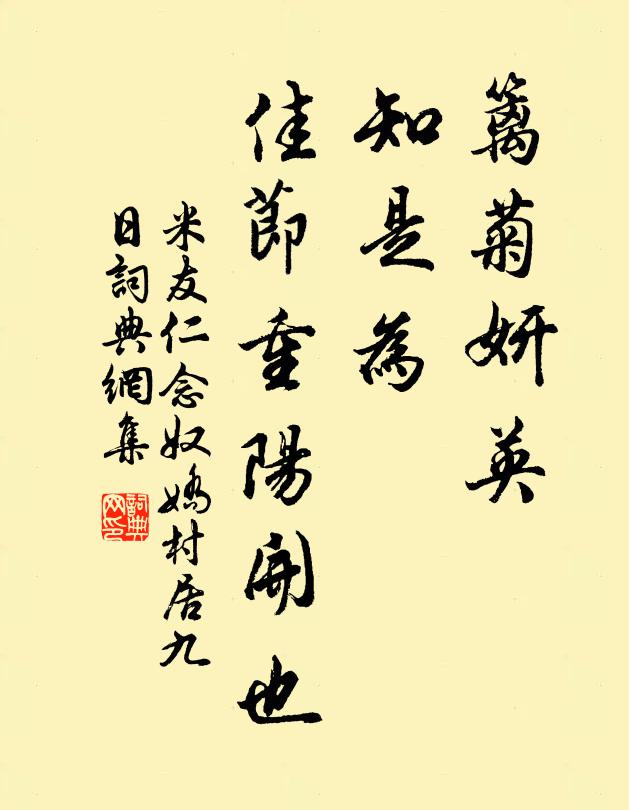 籬菊妍英
知是為
佳節重陽開也
米友仁念奴嬌村居九
日詞典網集
詞典
网印